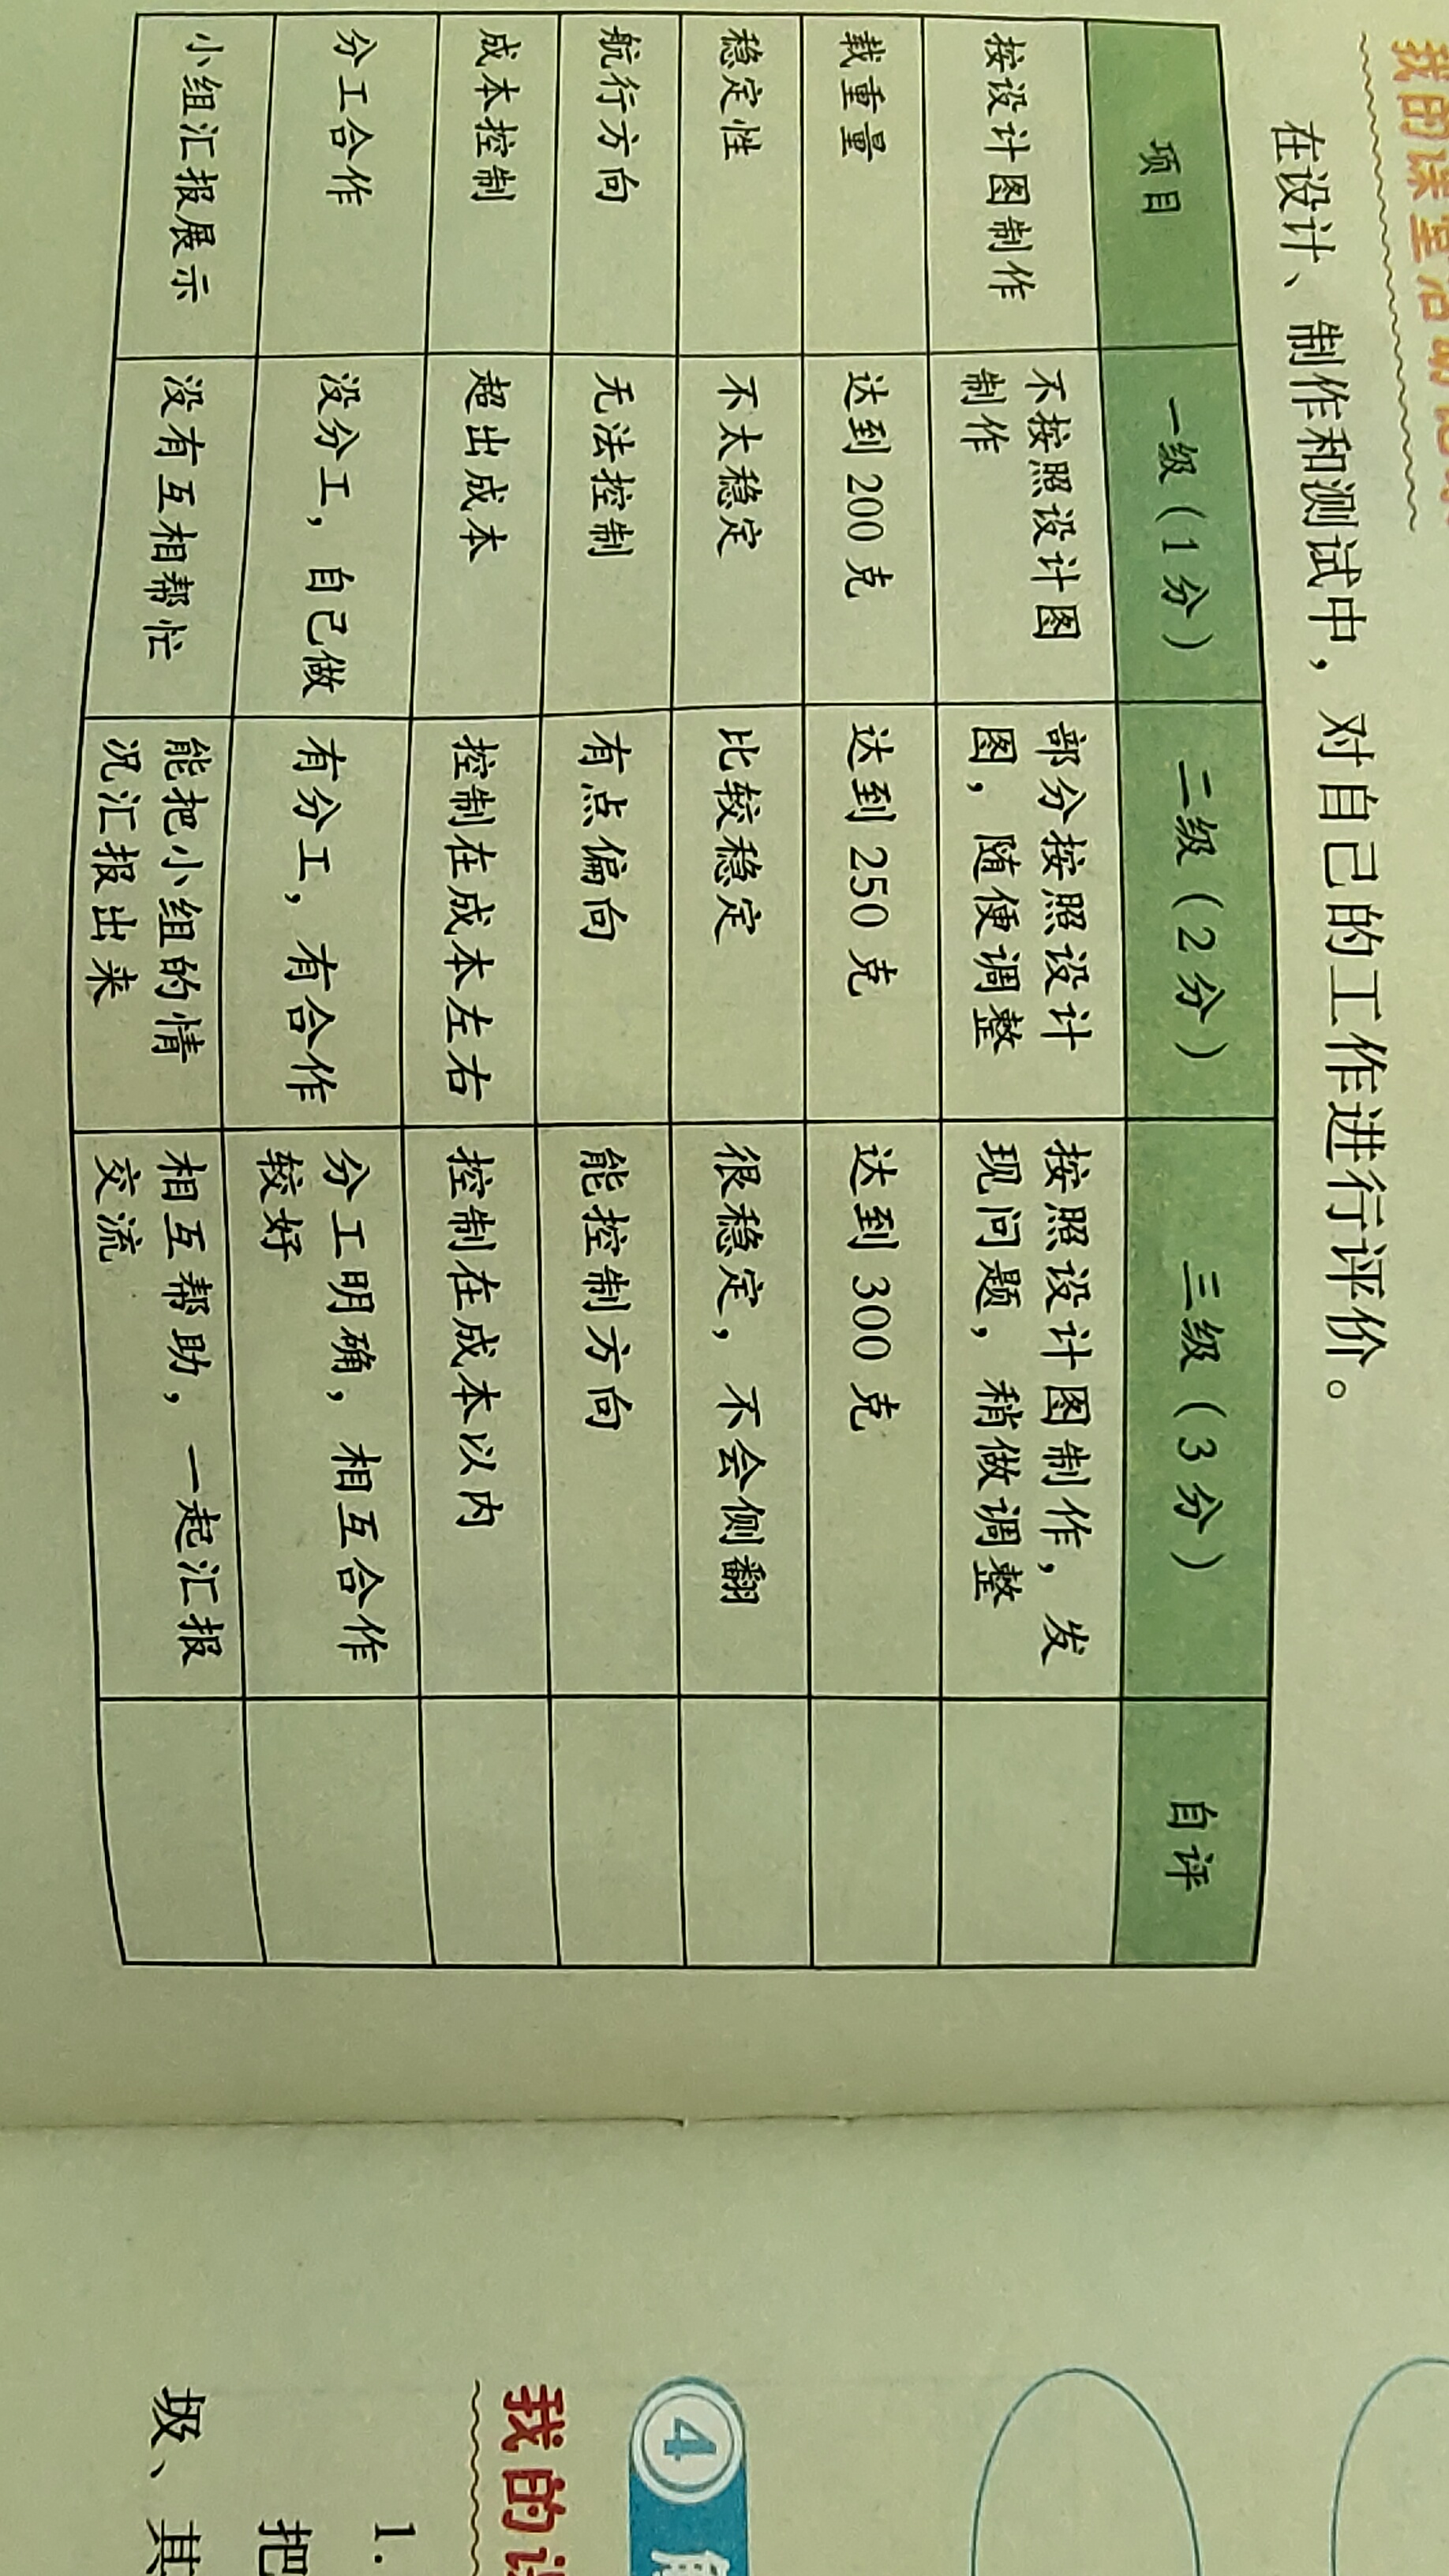 我的课堂活动
在设计、制作和测试中，对自己的工作进行评价。
项目 一级（1分） 二级（2分） 三级（3分） 自评
按设计图制作 不按照设计图 部分按照设计 按照设计图制作，发
制作 图，随便调整 现问题，稍做调整
载重量 达到 200 克 达到 250 克 达到 300 克
稳定性 不太稳定 比较稳定 很稳定，不会侧翻
航行方向 无法控制 有点偏向 能控制方向
成本控制 超出成本 控制在成本左右 控制在成本以内
分工合作 没分工，自己做 有分工，有合作 分工明确，相互合作
较好
小组汇报展示 没有互相帮忙 能把小组的情 相互帮助，一起汇报
况汇报出来 交流
4
我的
1.
把
圾、其